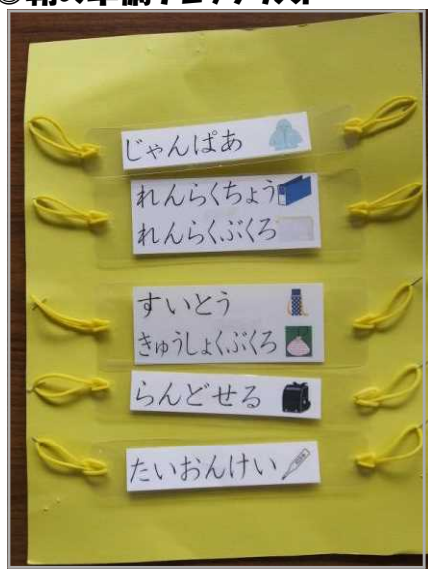 じゃんぱあ
れんらくちょう
れんらくぶくろ
すいとう
きゅうしょくぶくろ
らんどせる
たいおんけい